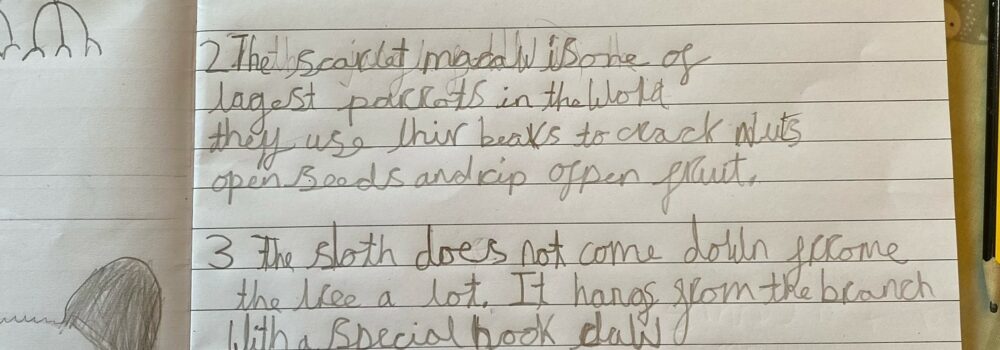 2 The scarlat macaw is one of
lagest parrots in the World
they use thir beaks to crack Nuts
open Seeds and rip ofpen fruit.
3 The sloth does not come down frome
the tree a lot. It hangs from the branch
With a special hook claw